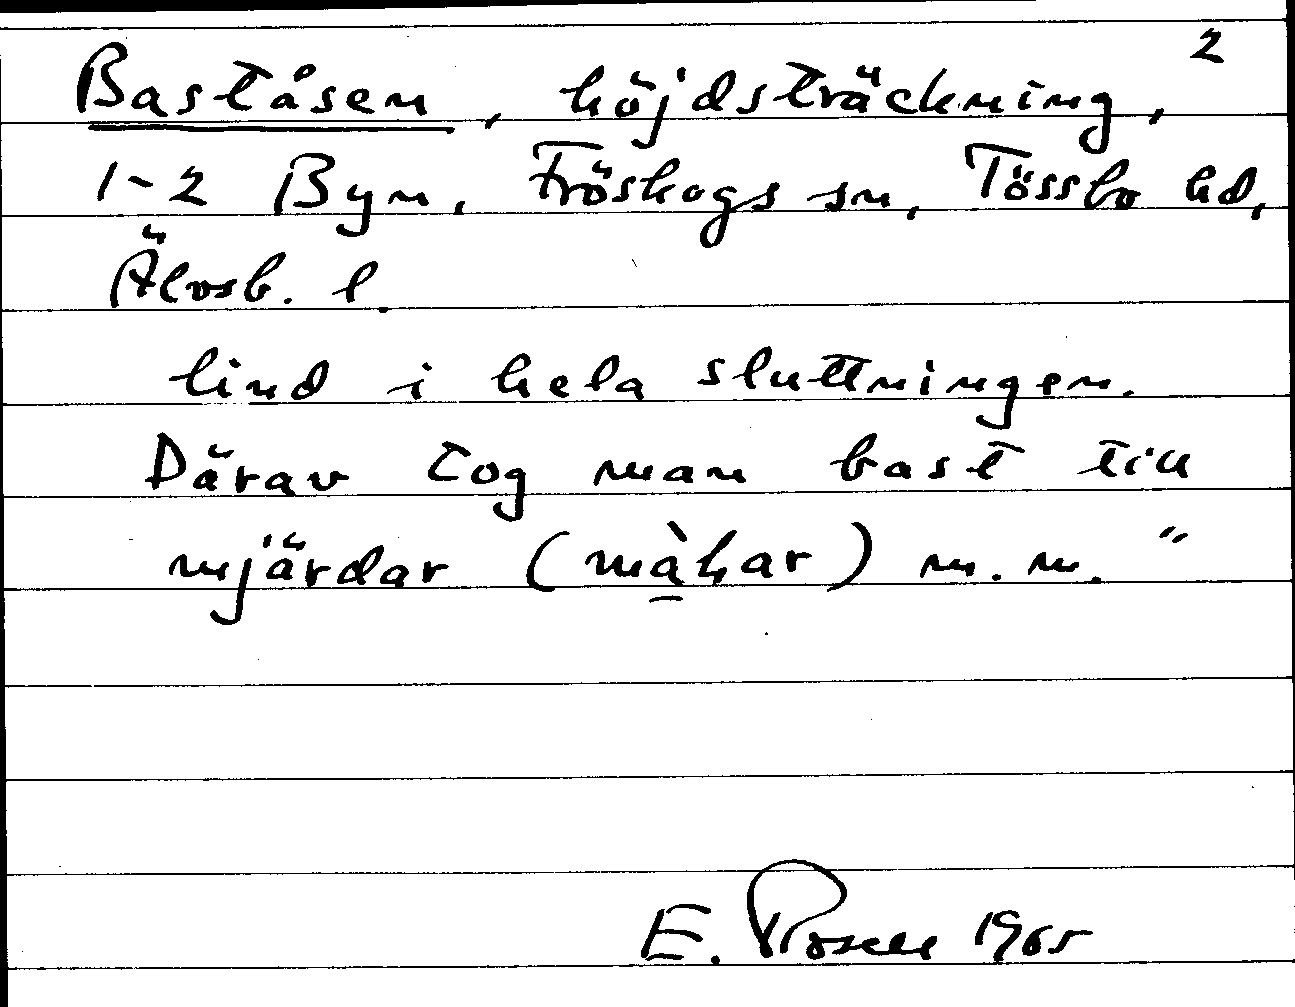 2
Baståsen, höjdsträckning,
1-2 Byn, Fröskogs sn, Tössbo hd,
Älvsb. l.
lind i hela sluttningen.
Därav tog man bast till
mjärdar (màkar) m.m. "
E. Rosell 1965